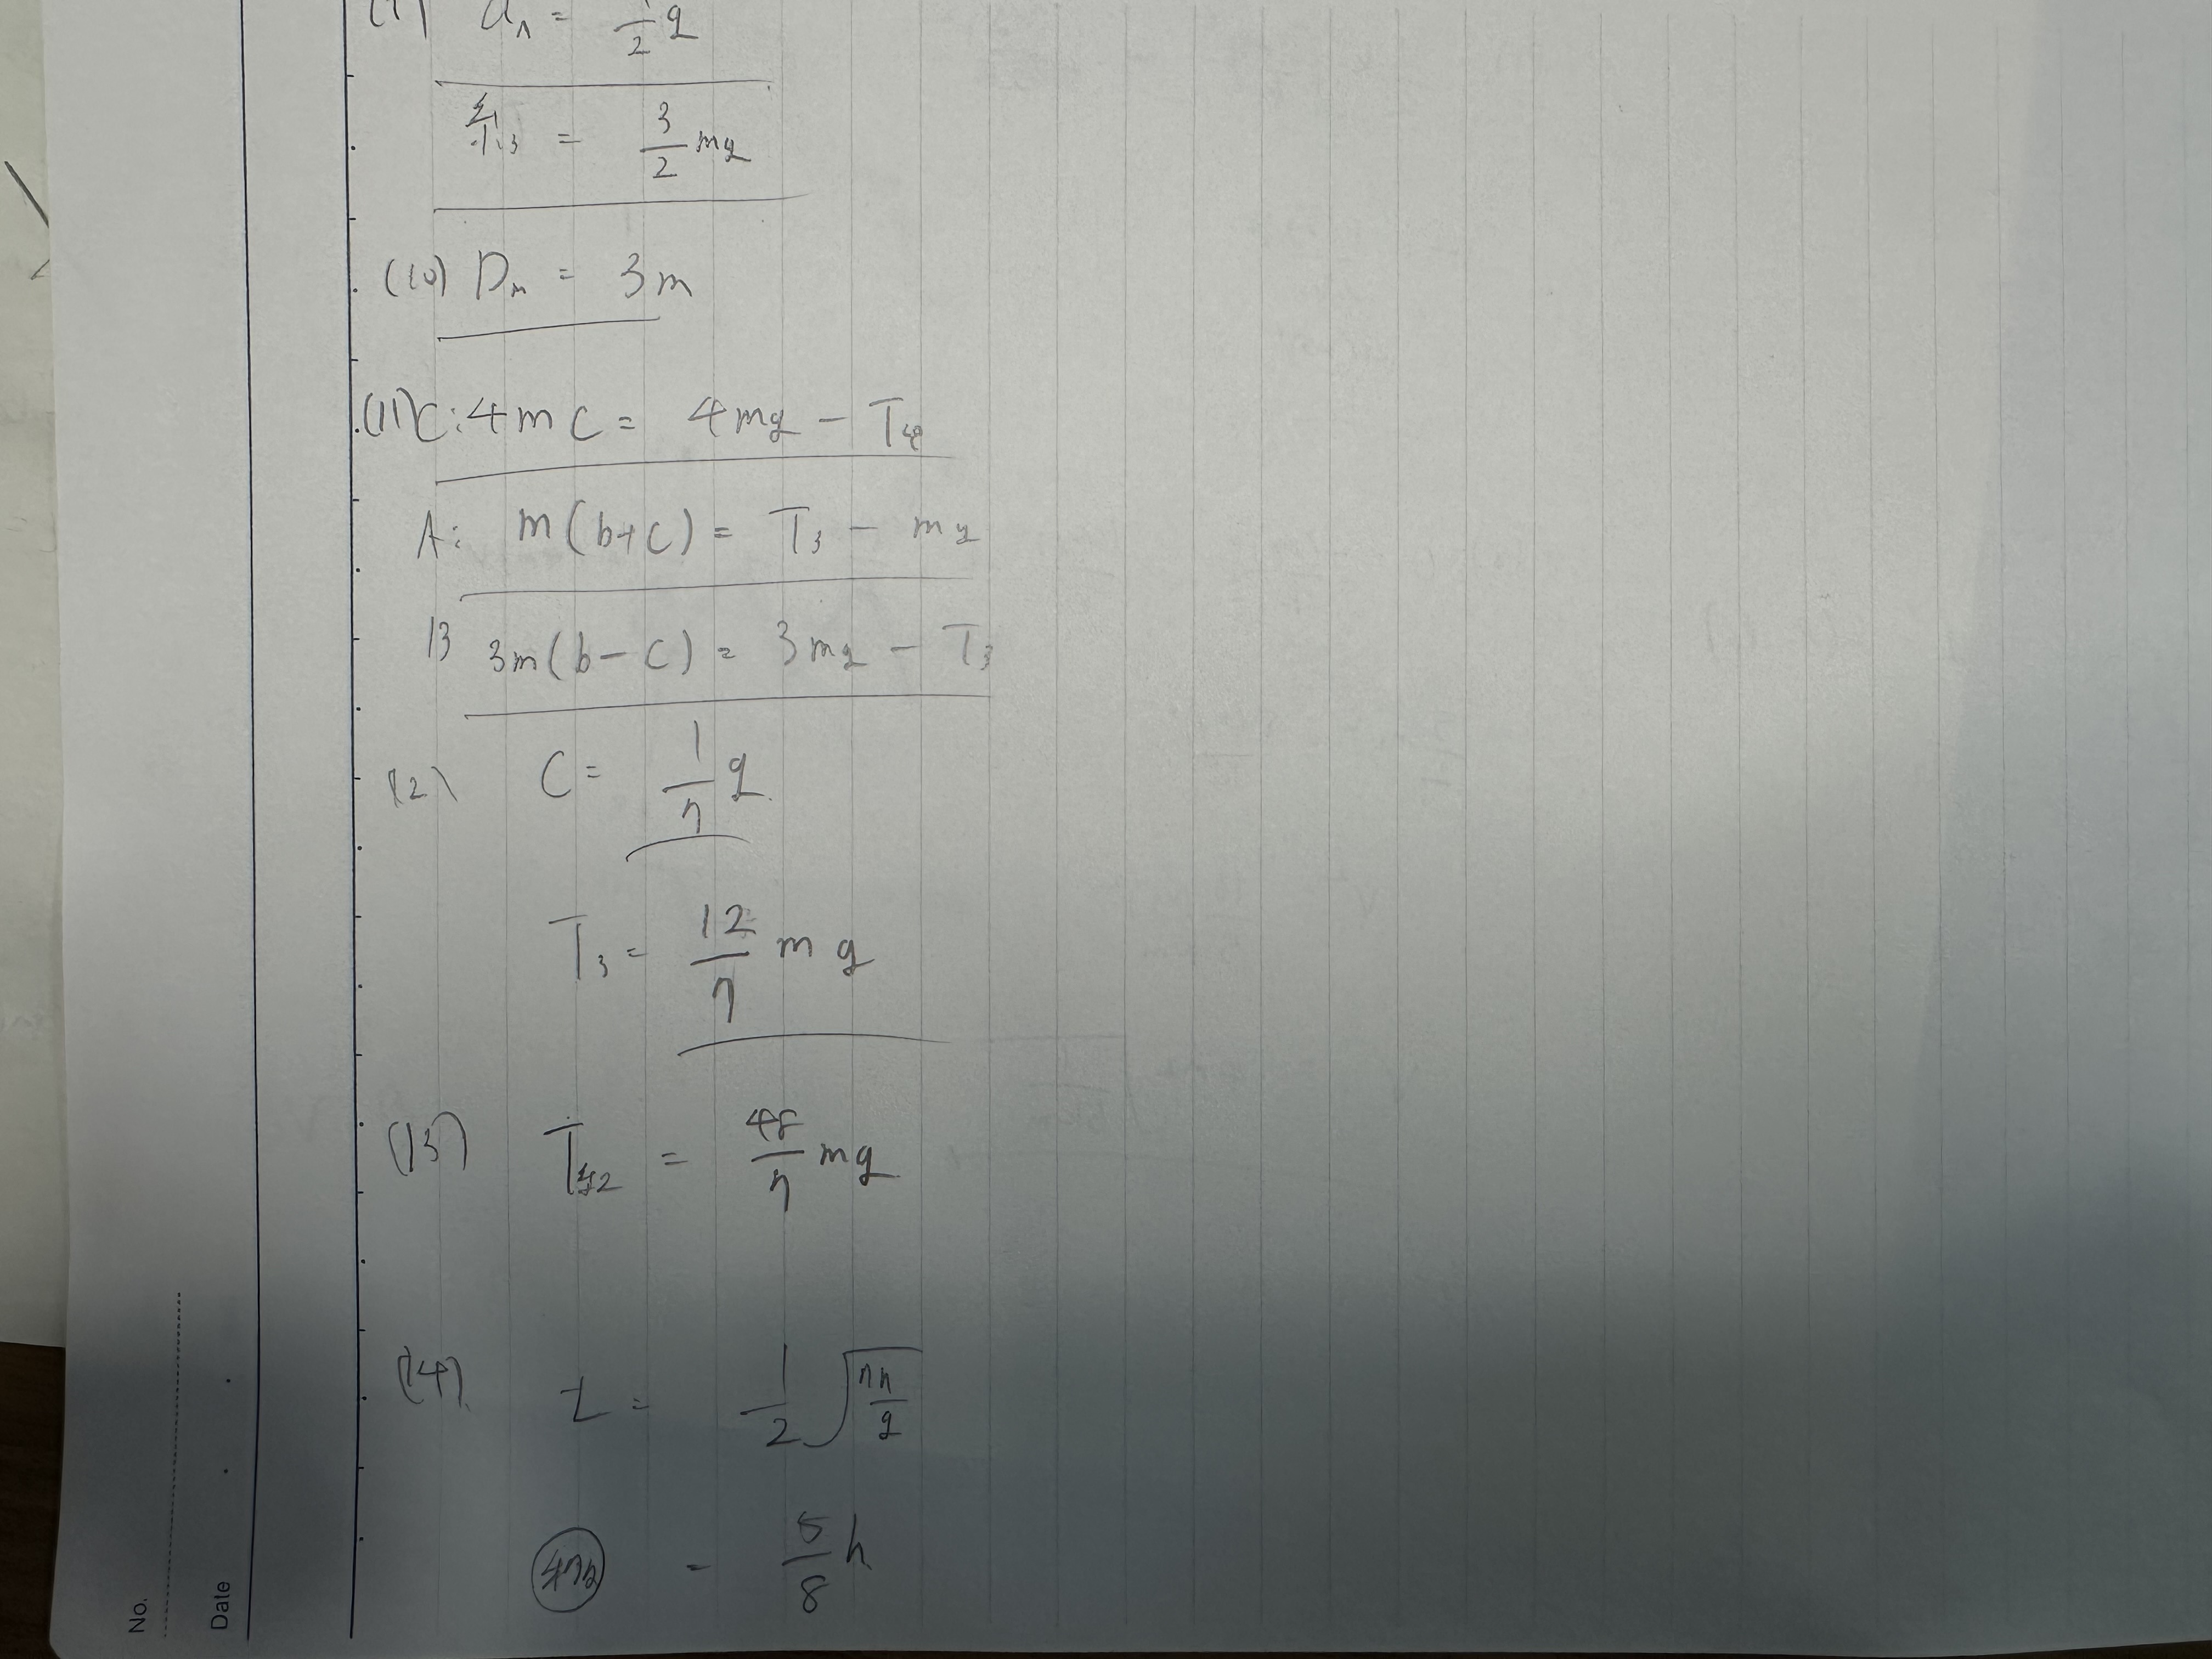 = 1/2 g
= 3/2 mg
(10) Dm = 3m
(11) C: 4mc = 4mg - T4
A: m(b+c) = T3 - mg
B 3m(b-c) = 3mg - T3
(12) C = 1/7 g
T3 = 12/7 mg
(13) = 48/7 mg
(14) t = 1/2 √(7h/g)
= 5/8 h
No.
Date